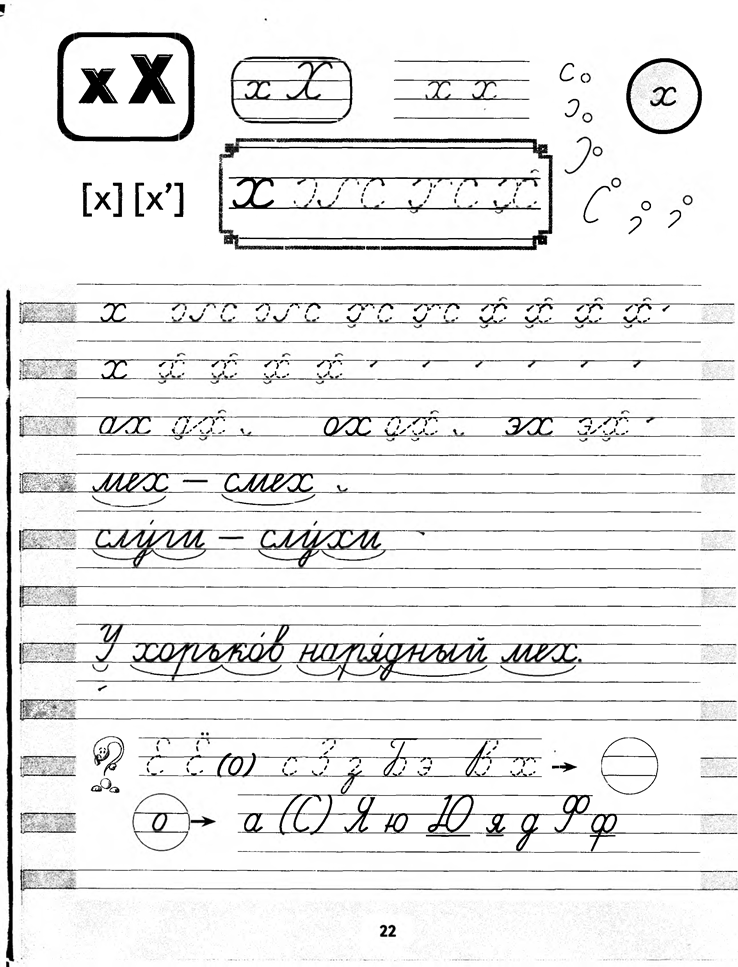 х Х х Х х х х
[х] [х’] х
х
х
ах ах ох ох эх эх
мех — смех
слу́ги — слу́хи
У хорько́в наря́дный мех.
Е Ё (О) с З з Б э В х →
о → а (С) Я ю Ю я д Ф ф
22